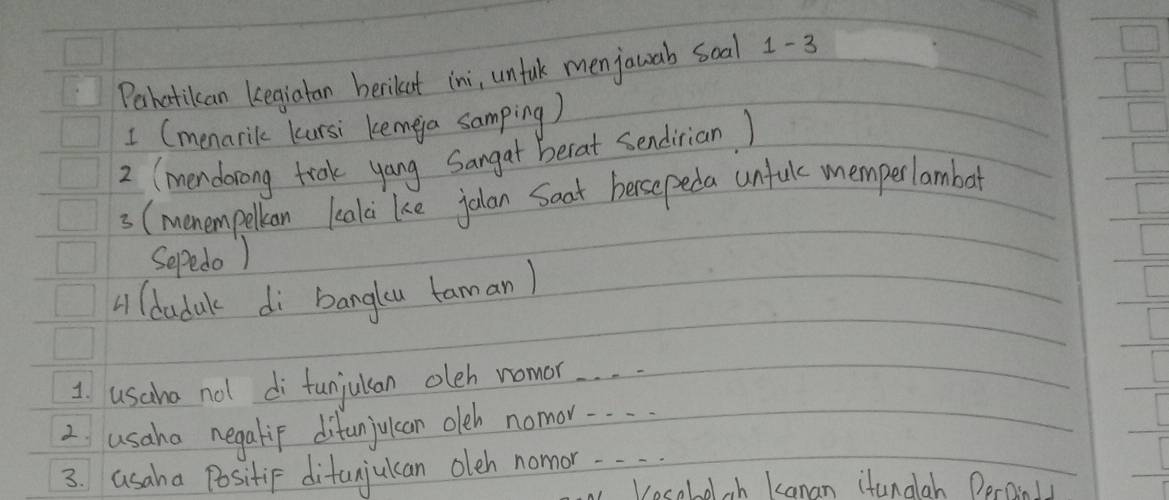 Pahatikan kegiatan berikut ini, untuk menjawab soal 1-3
1 (menarik kursi kemeja samping)
2 (mendorong trak yang sangat berat sendirian)
3 (menempelkan kaki ke jalan saat bersepeda untuk memperlambat
sepedo)
4 (duduk di bangku taman)
1. usaha nol di tunjukan oleh nomor ....
2. usaha negatif ditunjukan oleh nomor ....
3. usaha Positif ditunjukan oleh nomor ....
Kesebelah kanan itunglah